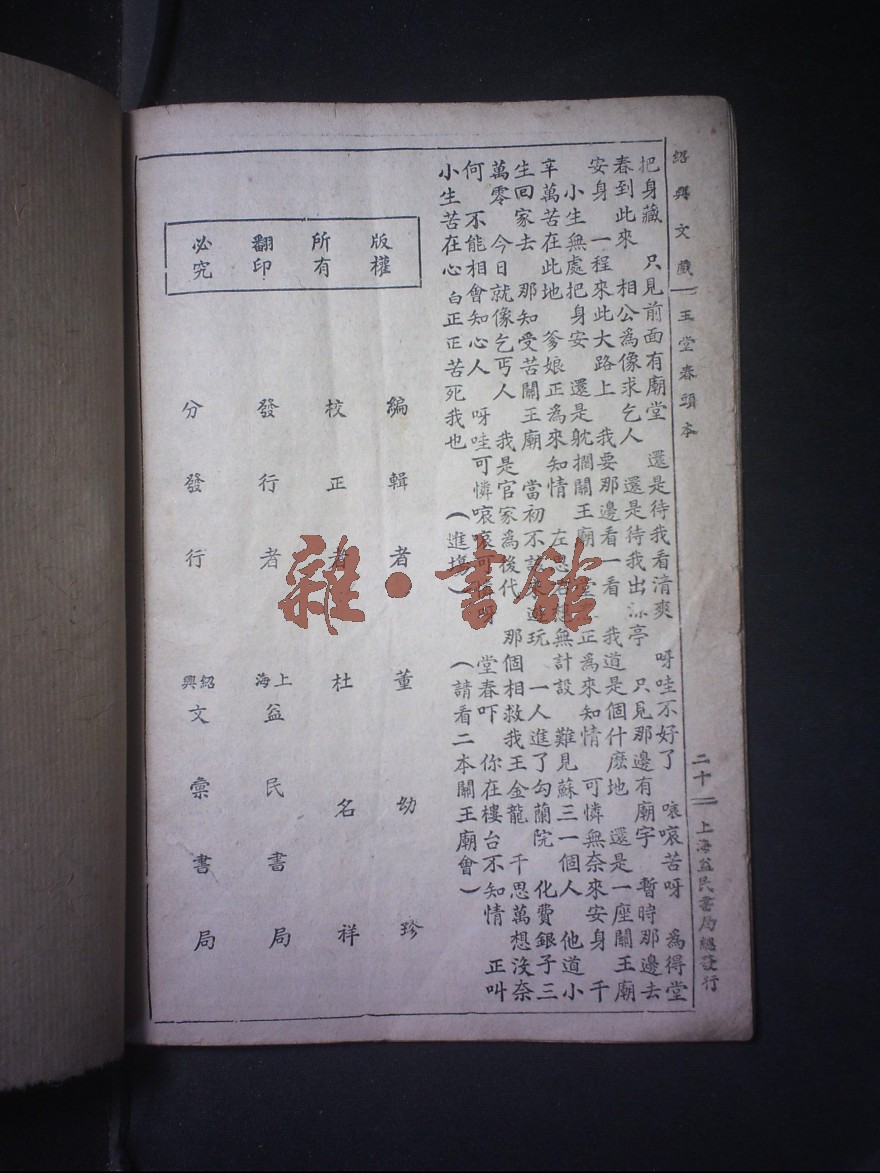 紹興文戲 玉堂春頭本 二十 上海益民書局總發行
把身藏 只見前面有廟堂 還是待我看清爽 呀哇不好了 哀哀苦呀 為得堂
春到此來 相公為像求乞人 還是待我出 亭 只見那邊有廟宇 暫時那邊去
安身 一程來此大路上 我要那邊看一看 我道是個什麽地 還是一座關王廟
小生無處把身安 還是躭擱關王廟 正為來知情 可憐無奈來安身 千
辛萬苦在此地 爹娘正為來知情 左思 無計設 難見蘇三一個人 他道小
生回家去 那知受苦關王廟 當初不 玩 一人進了勾蘭院 化費銀子三
萬零 今日就像乞丐人 我是官家為後代 那個相救我王金龍 千思萬想沒奈
何 不能相會知心人 呀哇可憐哀哀可 呀 堂春吓 你在樓台不知情 正叫
小生苦在心 白正正苦死我也 (進場) (請看二本關王廟會)
版權
所有
翻印
必究
編輯者 董幼珍
校正者 杜名祥
發行者 上海益民書局
分發行 紹興文彙書局
雜·書館